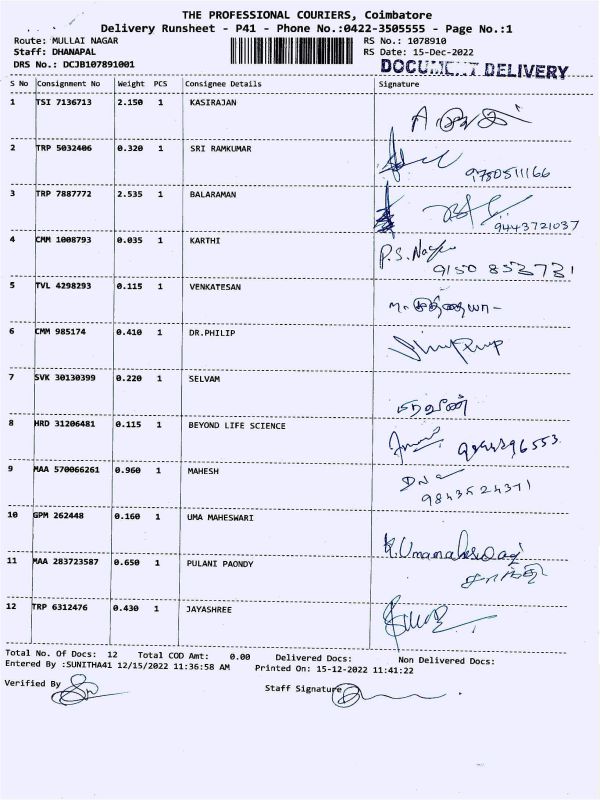 THE PROFESSIONAL COURIERS, Coimbatore
Delivery Runsheet - P41 - Phone No.:0422-3505555 - Page No.:1
Route: MULLAI NAGAR RS No.: 1078910
Staff: DHANAPAL RS Date: 15-Dec-2022
DRS No.: DCJB107891001 DOCUMENT DELIVERY
S No Consignment No Weight PCS Consignee Details Signature
1 TSI 7136713 2.150 1 KASIRAJAN
2 TRP 5032406 0.320 1 SRI RAMKUMAR
9780511166
3 TRP 7887772 2.535 1 BALARAMAN
9443721037
4 CMM 1008793 0.035 1 KARTHI
9150 853731
5 TVL 4298293 0.115 1 VENKATESAN
6 CMM 985174 0.410 1 DR.PHILIP
7 SVK 30130399 0.220 1 SELVAM
8 HRD 31206481 0.115 1 BEYOND LIFE SCIENCE
9 MAA 570066261 0.960 1 MAHESH
9843524371
10 GPM 262448 0.160 1 UMA MAHESWARI
K. Umamaheswari
11 MAA 283723587 0.650 1 PULANI PAONDY
12 TRP 6312476 0.430 1 JAYASHREE
Total No. Of Docs: 12 Total COD Amt: 0.00 Delivered Docs: Non Delivered Docs:
Entered By :SUNITHA41 12/15/2022 11:36:58 AM Printed On: 15-12-2022 11:41:22
Verified By Staff Signature